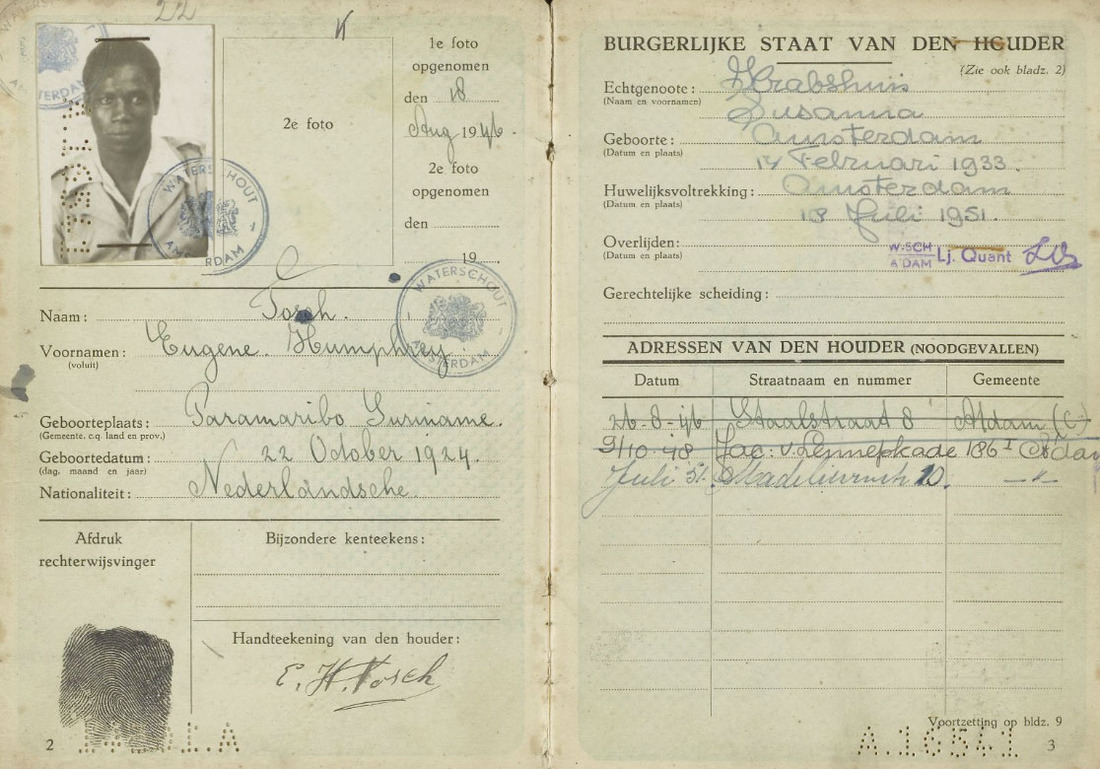 22
1e foto
opgenomen
den 18
Aug 1946.
2e foto
2e foto
opgenomen
den
19
WATERSCHOUT AMSTERDAM
Naam: Tosch.
WATERSCHOUT AMSTERDAM
Voornamen: Eugene. Humphrey
(voluit)
Geboorteplaats: Paramaribo Suriname.
(Gemeente, c.q. land en prov.)
Geboortedatum: 22 October 1924.
(dag, maand en jaar)
Nationaliteit: Nederlandsche.
Afdruk
rechterwijsvinger
Bijzondere kenteekens:
Handteekening van den houder:
E. H. Tosch
2
BURGERLIJKE STAAT VAN DEN HOUDER
(Zie ook bladz. 2)
Echtgenoote: Krabshuis
(Naam en voornamen)
Susanna
Geboorte: Amsterdam
(Datum en plaats)
14 Februari 1933.
Huwelijksvoltrekking: Amsterdam
(Datum en plaats)
18 Juli 1951.
Overlijden:
(Datum en plaats)
W:SCH A'DAM Lj. Quant
Gerechtelijke scheiding:
ADRESSEN VAN DEN HOUDER (NOODGEVALLEN)
Datum Straatnaam en nummer Gemeente
26-8-46 Staalstraat 8 A'dam (C)
9/10-48 Jac: v. Lennepkade 186 I A'dam
Juli 51. 10. -"-
Voortzetting op bldz. 9
A.16541
3